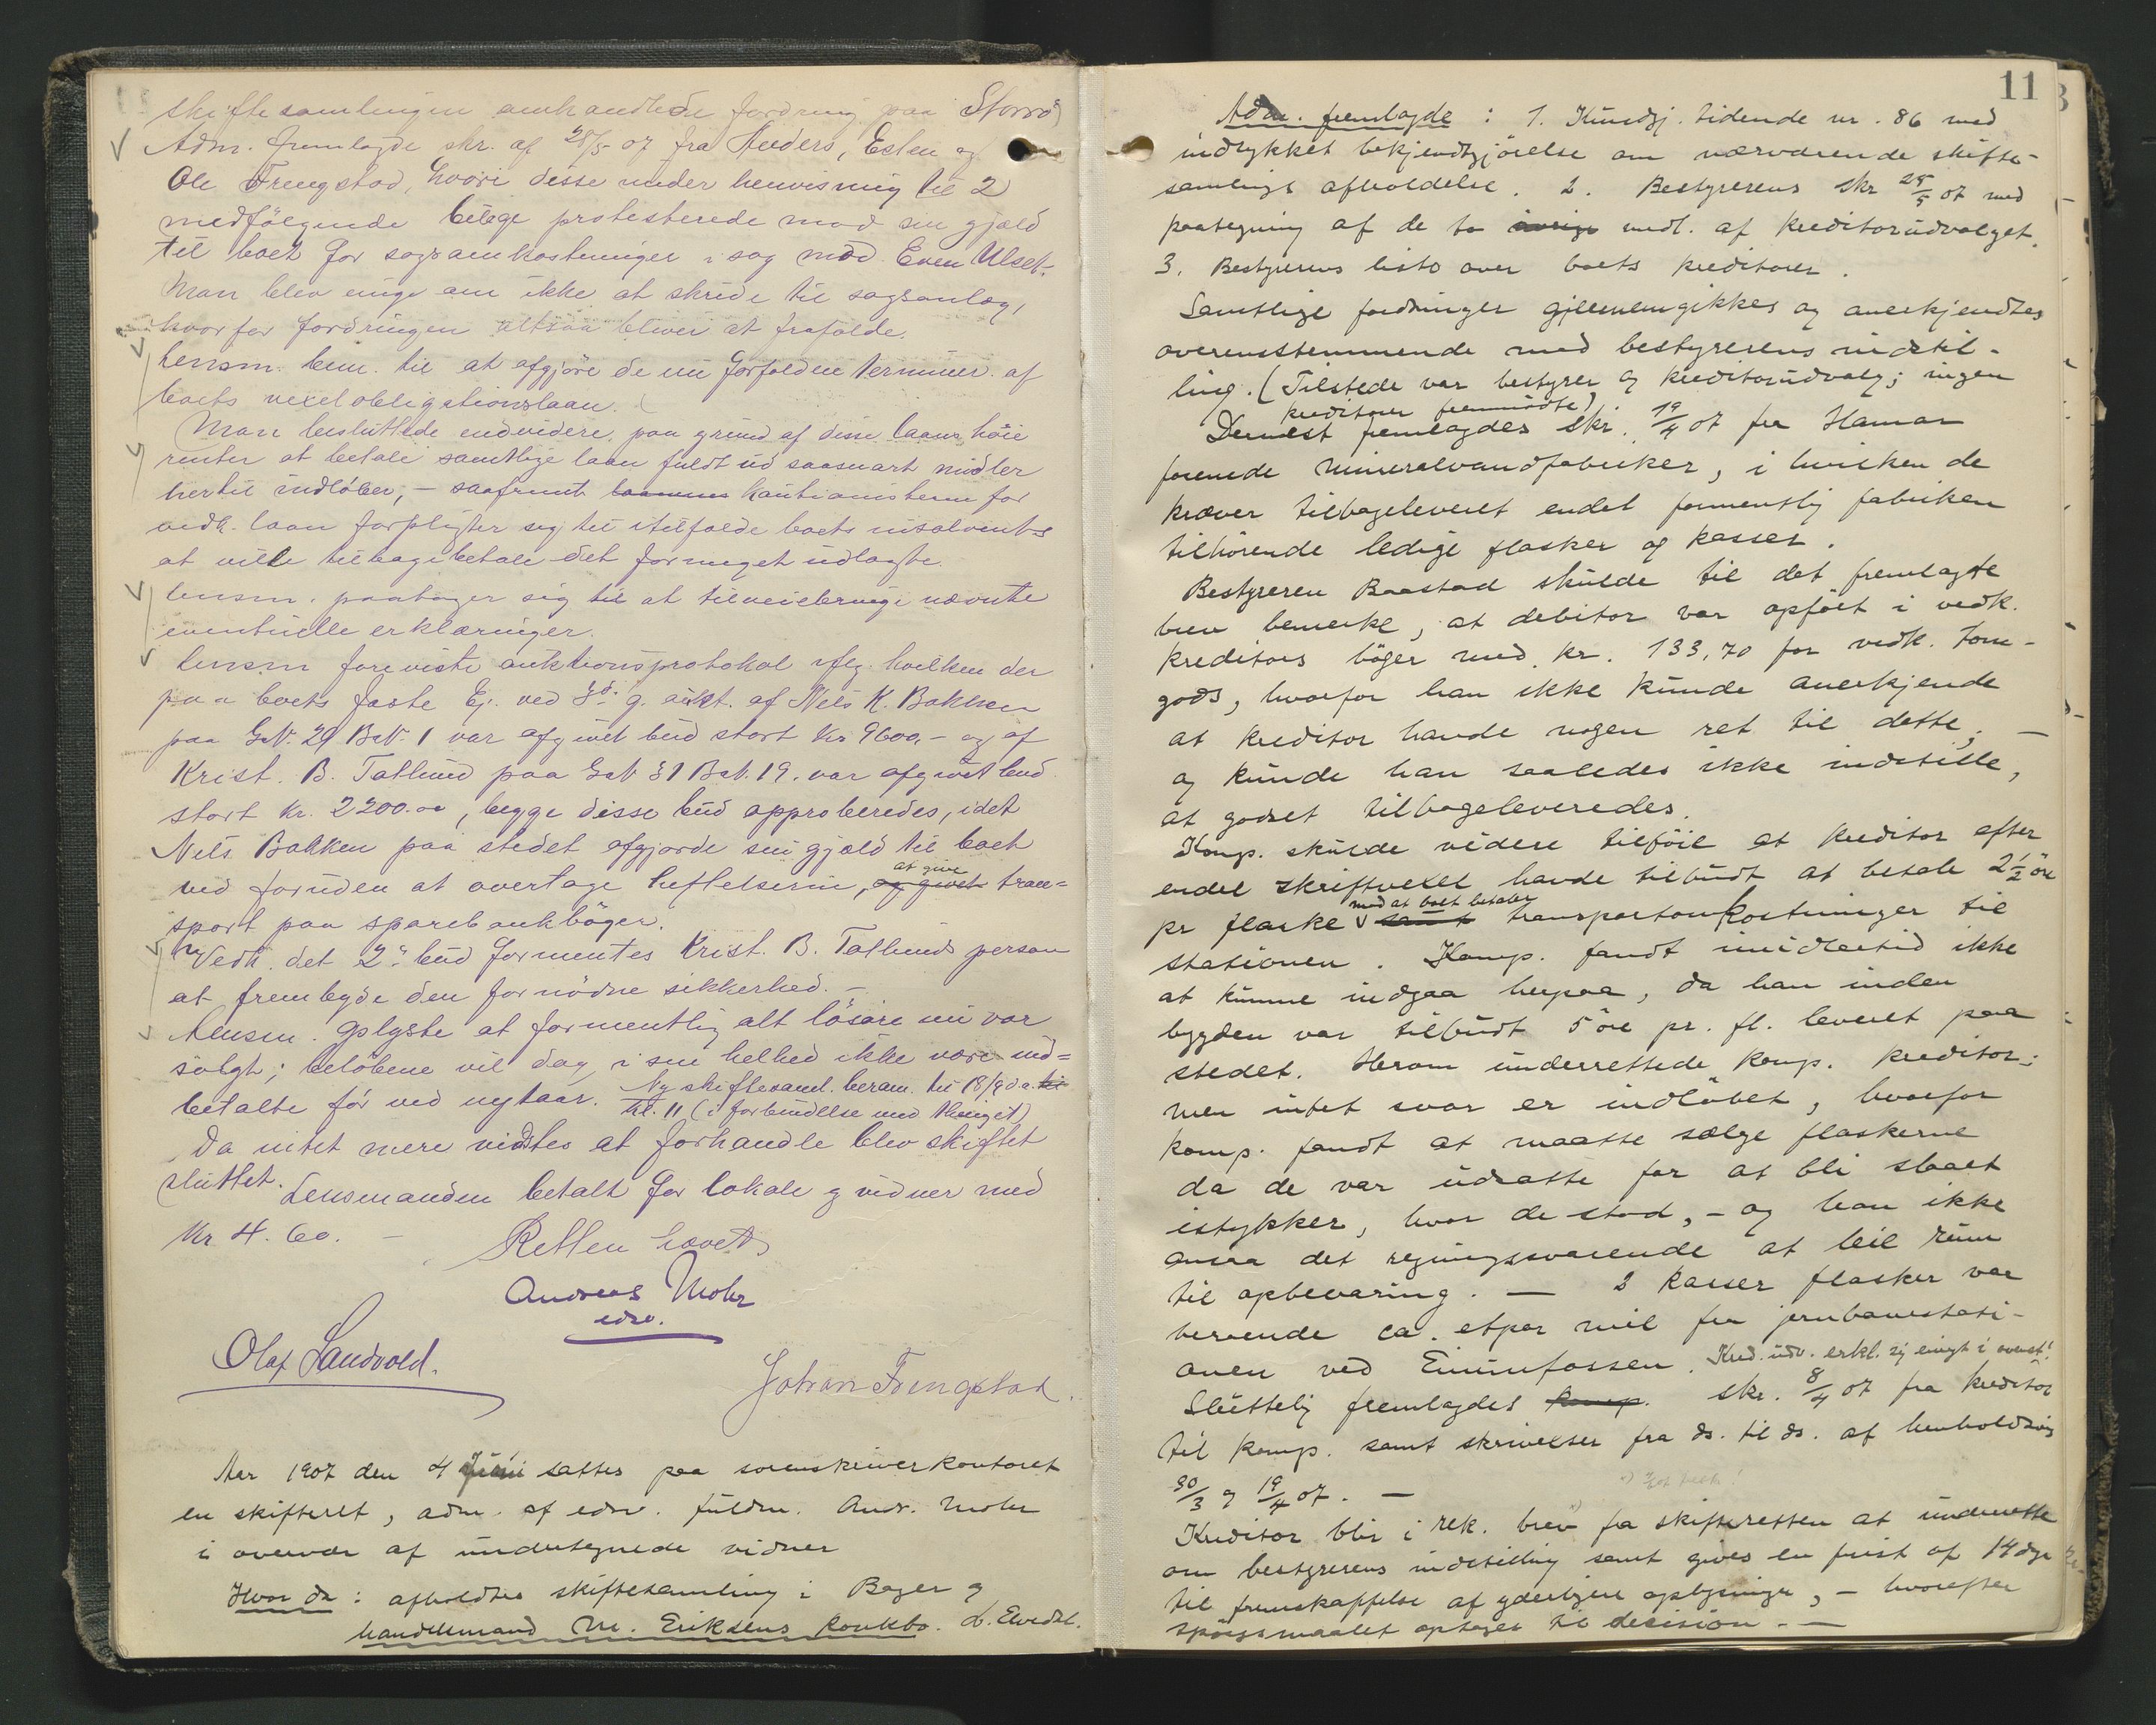 skiftesamlingen omhandlede fordring paa Storrø
Adm. fremlagde skr. af 28/5 07 fra Anders, Esten og
Ole Trengstad, hvori disse under henvisning til 2
medfölgende bilage protesterede mod sin gjæld
til boet for sagsomkostninger i sag mod Even Ulset.
Man blev enige om ikke at skride til sagsanlæg,
hvorfor fordringen altsaa bliver at frafalde.
Lensm. bem. til at afgjöre de nu forfaldne terminer af
boets vexelobligationslaan.
Man besluttede endvidere paa grund af disse laans höie
renter at betale samtlige laan fuldt ud saasnart midler
hertil indlöber, – saafremt laanenes kautionisterne for
vedk. laan forpligter sig til i tilfælde boets insolvents
at ville tilbagebetale det formeget udlagte.
Lensm. paatager sig til at tilveiebringe nævnte
eventuelle erklæringer.
Lensm foreviste auktionsprotokol iflg. hvilken der
paa boets faste Ej. ved 3die g. aukt. af Nels K. Bakken
paa G.N. 29 B.N. 1 var afgivet bud stort kr 9600,- og af
Krist. B. Tatlund paa G.N 31 B.N. 19. var afgivet bud
stort kr. 2200.00, begge disse bud approberedes, idet
Nils Bakken paa stedet afgjorde sin gjæld til boet
at give
ved foruden at overtage heftelserne, og givet tran=
sport paa sparebankböger.
Vedk. det 2det bud formentes Krist. B. Tatlunds person
at frembyde den fornödne sikkerhed. –
Lensm. oplyste at formentlig alt lösöre nu var
solgt; belöbene vil dog i sin helhed ikke være ind=
betalte för ved nytaar. Ny skiftesaml. beram. til 18/9 d.a.
kl. 11 (i forbindelse med thinget)
Da intet mere vidstes at forhandle blev skiftet
sluttet. Lensmanden betalt for lokale og vidner med
Kr 4.60. – Retten hævet
Andreas Mohr
edsv.
Olaf Sandvold.
Johan Trengstad.
Aar 1907 den 4 Juni sattes paa sorenskriverkontoret
en skifteret, adm. af edsv. fuldm. Andr. Mohr
i overvær af undertegnede vidner
Hvor da: afholdtes skiftesamling i Bager og
handelsmand M. Eriksens konkbo. L. Elvedal.
11
Adm. fremlagde: 1. Kundgj. tidende nr. 86 med
indrykket bekjendtgjörelse om nærværende skifte-
samlings afholdelse. 2. Bestyrerens skr 28/5 07 med
paategning af de to övrige medl. af kreditorudvalget.
3. Bestyrerens liste over boets kreditorer.
Samtlige fordringer gjennemgikkes og anerkjendtes
overensstemmende med bestyrerens indstil-
ling. (Tilstede var bestyrer og kreditorudvalg; ingen
kreditorer fremmödte)
Dernæst fremlagdes skr. 19/4 07 fra Hamar
forenede Mineralvandfabriker, i hvilken de
kræver tilbageleveret endel formentlig fabriken
tilhörende ledige flasker og kasser.
Bestyreren Baastad skulde til det fremlagte
brev bemerke, at debitor var opfört i vedk.
kreditors böger med kr. 133,70 for vedk. tom-
gods, hvorfor han ikke kunde anerkjende
at kreditor havde nogen ret til dette, –
og kunde han saaledes ikke indstille,
at godset tilbageleveredes.
Komp. skulde videre tilföie at kreditor efter
endel skriftvexel havde tilbudt at betale 2½ öre
mod at boet betaler
pr flaske samt transportomkostninger til
stationen. Komp. fandt imidlertid ikke
at kunne indgaa herpaa, da han inden
bygden var tilbudt 5 öre pr. fl. leveret paa
stedet. Herom underrettede komp. kreditor;
men intet svar er indlöbet, hvorfor
komp. fandt at maatte sælge flaskerne
da de var udsatte for at bli slaaet
istykker, hvor de stod, – og han ikke
ansaa det regningssvarende at leie rum
til opbevaring. – 2 kasser flasker var
beroende ca. etpar mil fra jernbanestasi-
onen ved Eimunfossen. Kred. udv. erkl. sig enigt i ovenst.!
Sluttelig fremlagdes komp. skr. 8/4 07 fra kreditor
til komp. samt skrivelser fra ds. til ds. af henholdsvis
30/3 og 19/4 07. –
Kreditor blir i rek. brev fra skifteretten at underrette
om bestyrerens indstilling samt gives en frist af 14 dge
til fremskaffelse af yderligere oplysninger, – hvorefter
spörgsmaalet optages til decision. –